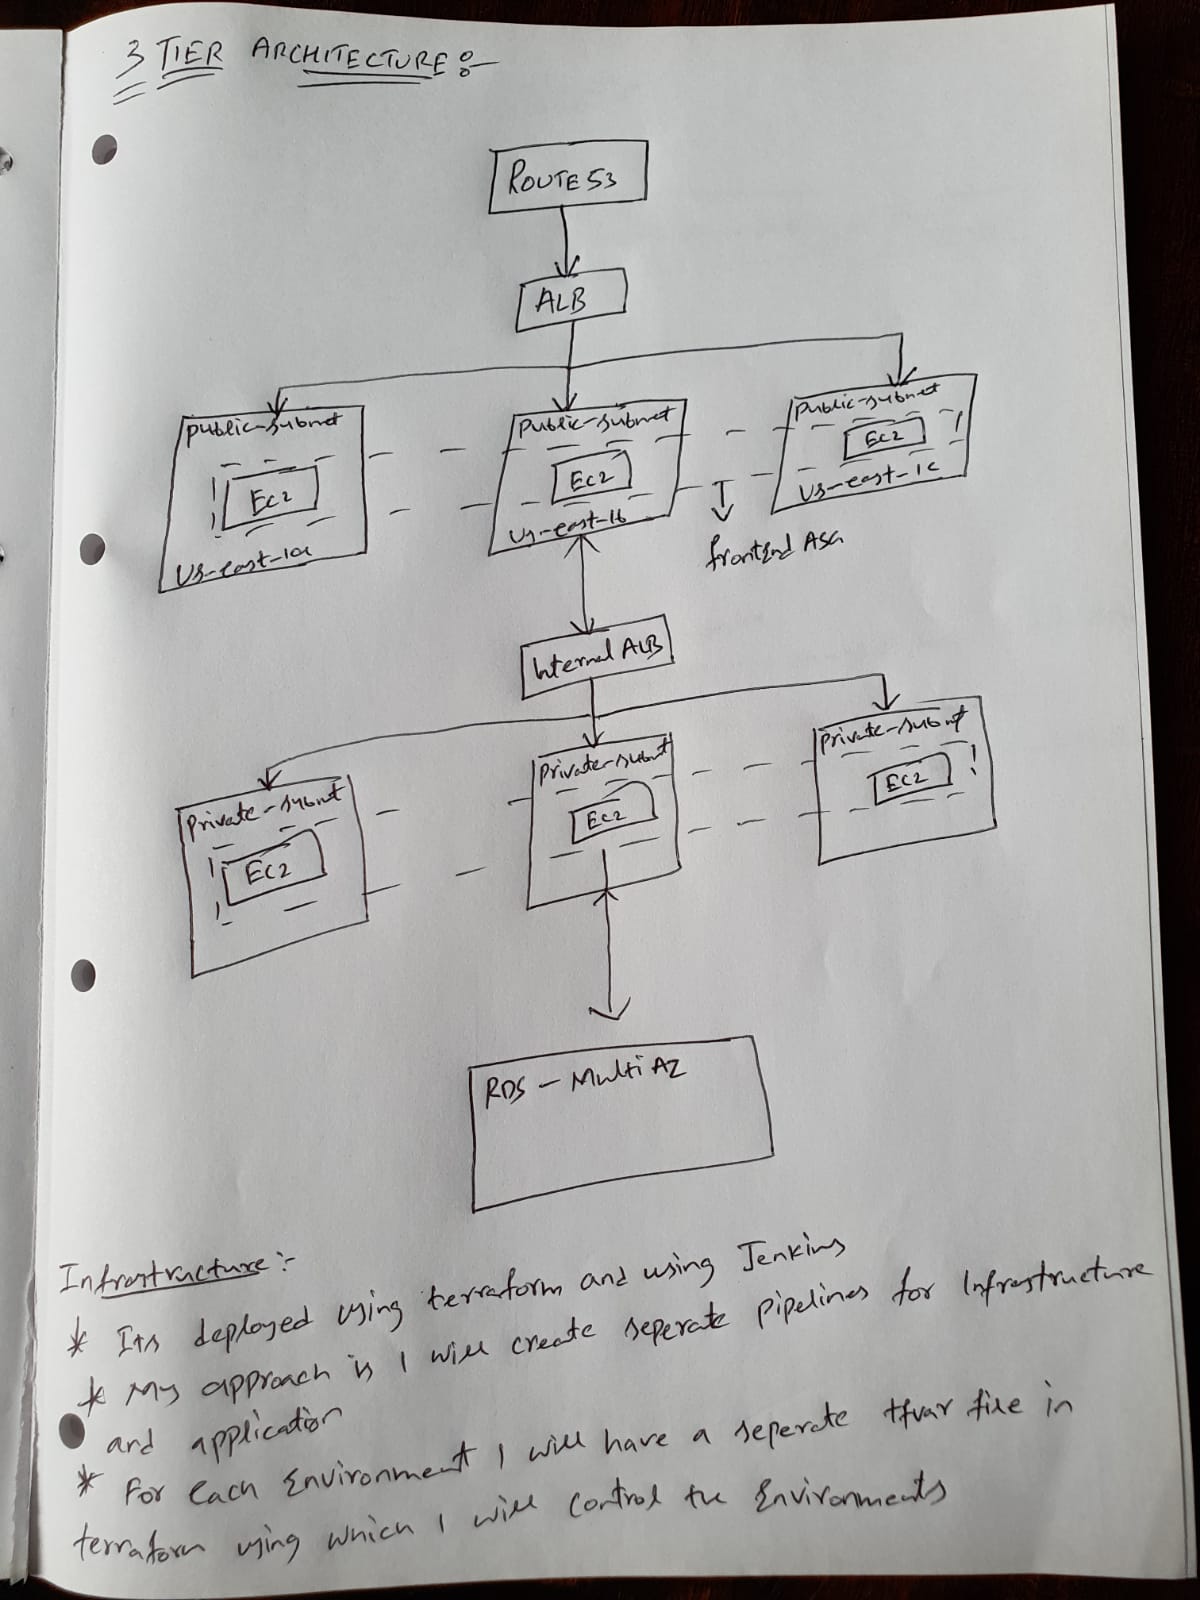 3 TIER ARCHITECTURE:-
ROUTE 53
ALB
public-subnet
EC2
us-east-1a
public-subnet
EC2
us-east-1b
public-subnet
EC2
us-east-1c
frontEnd ASG
Internal ALB
private-subnet
EC2
private-subnet
EC2
private-subnet
EC2
RDS - Multi AZ
Infrastructure:-
* Its deployed using terraform and using Jenkins
* My approach is I will create seperate pipelines for Infrastructure
and application
* For Each Environment I will have a seperate tfvar file in
terraform using which I will control the Environments